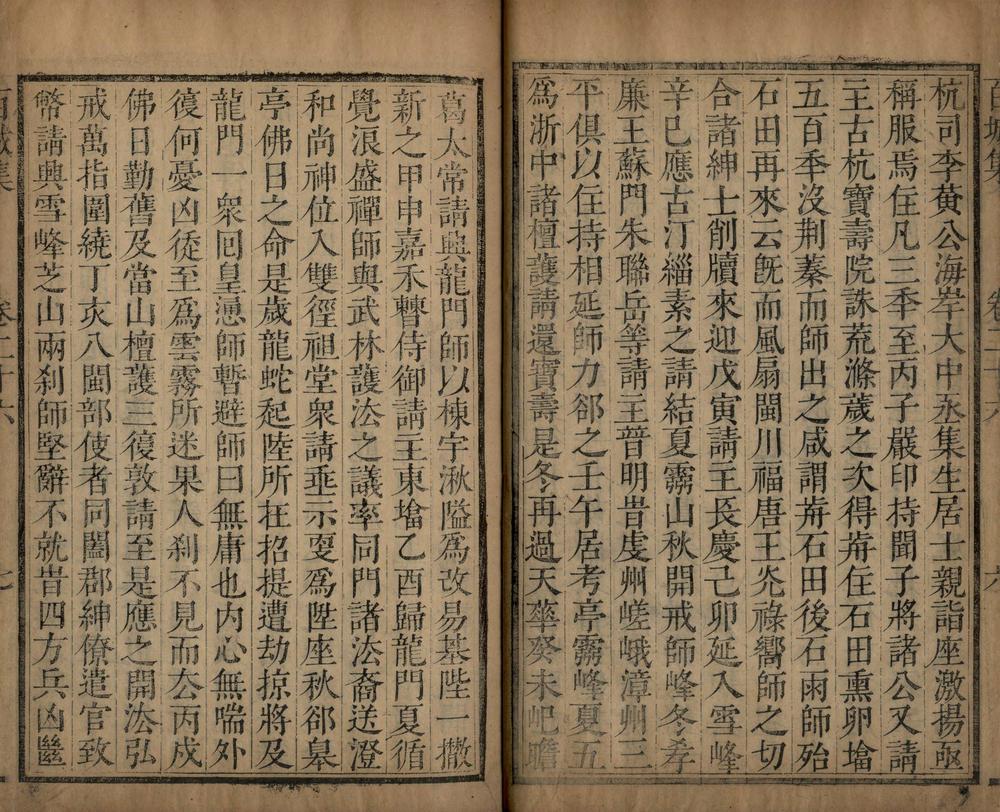 杭司李黃公海岸大中丞集生居士親詣座激揚亟
稱服焉住凡三季至丙子嚴印持聞子將諸公又請
主古杭寶壽院誅荒滌薉之次得歬住石田熏卵墖
五百季沒荆蓁而師出之咸謂歬石田後石雨師殆
石田再來云旣而風扇閩川福唐王灮祿嚮師之切
合諸紳士削牘來迎戊寅請主長慶己卯延入雪峰
辛巳應古汀緇素之請結夏靈山秋開戒師峰冬孝
廉王蘇門朱聯岳等請主普明旹虔州嵯峨漳州三
平俱以住持相延師力郤之壬午居考亭靈峰夏五
爲浙中諸檀護請還寶壽是冬再過天華癸未屺瞻
葛太常請興龍門師以棟宇湫隘爲改易基陛一撤
新之甲申嘉禾曹侍御請主東墖乙酉歸龍門夏循
覺浪盛禪師與武林護法之議率同門諸法裔送澄
和尚神位入雙徑祖堂衆請垂示叓爲陞座秋郤皋
亭佛日之命是歲龍蛇起陸所在招提遭劫掠將及
龍門一衆囘皇慂師暫避師曰無庸也内心無喘外
復何憂凶徒至爲雲霧所迷果人刹不見而厺丙戌
佛日勤舊及當山檀護三復敦請至是應之開法弘
戒萬指圍繞丁亥八閩部使者同闔郡紳僚遣官致
幣請興雪峰芝山兩刹師堅辭不就旹四方兵凶繇
百城集
卷二十六
六
百城集
卷二十六
七